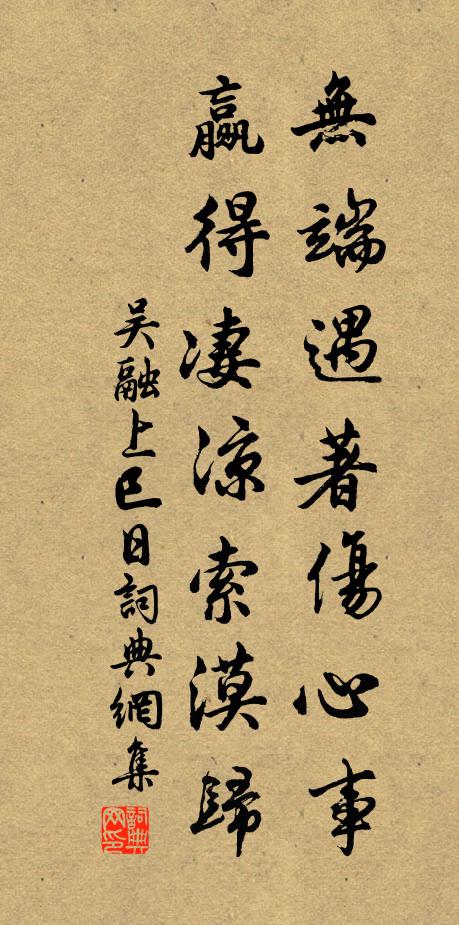 無端遇著傷心事
贏得凄涼索漠歸
吴融上巳日詞典網集
詞典网印